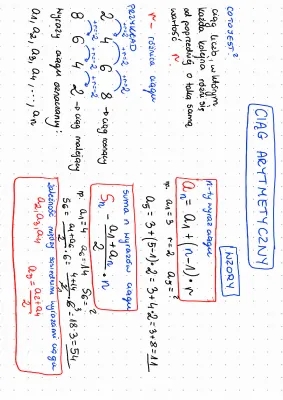 CIĄG ARYTMETYCZNY
CO TO JEST?
ciąg liczb, w którym
każda kolejna różni się
od poprzedniej o taką samą
wartość r.
r - różnica ciągu
PRZYKŁAD
r=2 r=2 r=2
2 4 6 8 → ciąg rosnący
r=-2 r=-2 r=-2
8 6 4 2 → ciąg malejący
wyrazy ciągu oznaczamy:
a₁, a₂, a₃, a₄, ..., aₙ
WZORY
n-ty wyraz ciągu
aₙ = a₁ + (n-1)·r
np. a₁=3 r=2 a₅=?
a₅ = 3+(5-1)·2 = 3+4·2 = 3+8 = 11
suma n wyrazów ciągu
Sₙ = a₁+aₙ/2 · n
np. a₁=4 a₆=14 S₆=?
S₆ = a₁+a₆/2 · 6 = 4+14/2 · 6 = 18·3 = 54
zależność między sąsiednimi wyrazami ciągu
a₂, a₃, a₄
a₃ = a₂+a₄/2